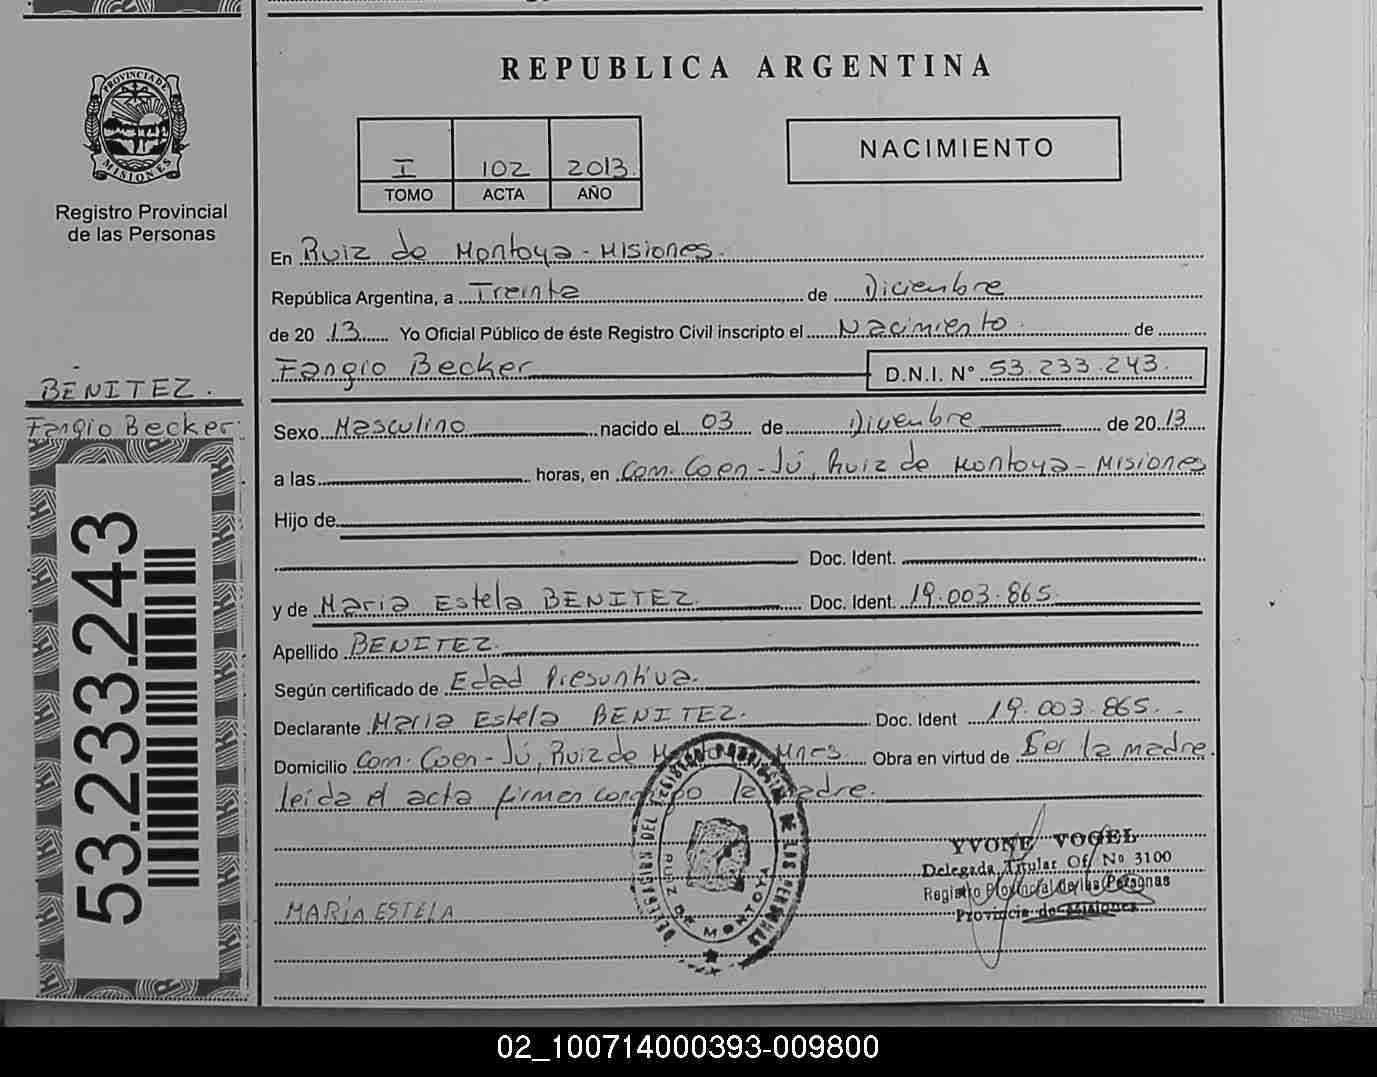 REPUBLICA ARGENTINA
PROVINCIA DE MISIONES
Registro Provincial
de las Personas
I 102 2013.
TOMO ACTA AÑO
NACIMIENTO
En Ruiz de Montoya - Misiones.
República Argentina, a Treinta de Diciembre
de 20 13. Yo Oficial Público de éste Registro Civil inscripto el Nacimiento de
Fangio Becker D.N.I. N° 53.233.243.
BENITEZ.
Fangio Becker.
53.233.243
Sexo Masculino nacido el 03 de Diciembre de 20 13
a las horas, en Com. Coen-Jú, Ruiz de Montoya - Misiones
Hijo de
Doc. Ident.
y de Maria Estela BENITEZ. Doc. Ident. 19.003.865.
Apellido BENITEZ.
Según certificado de Edad Presuntiva.
Declarante Maria Estela BENITEZ. Doc. Ident 19.003.865.-
Domicilio Com. Coen-Jú, Ruiz de Mnes. Obra en virtud de Ser la madre.
leida el acta firmen conmigo la madre.
MARÍA ESTELA
DELEGACION DEL REGISTRO PROVINCIAL DE LAS PERSONAS
RUIZ DE MONTOYA
YVONE VOGEL
Delegada Titular Of. Nº 3100
Registro Provincial de las Personas
Provincia de Misiones
02_100714000393-009800